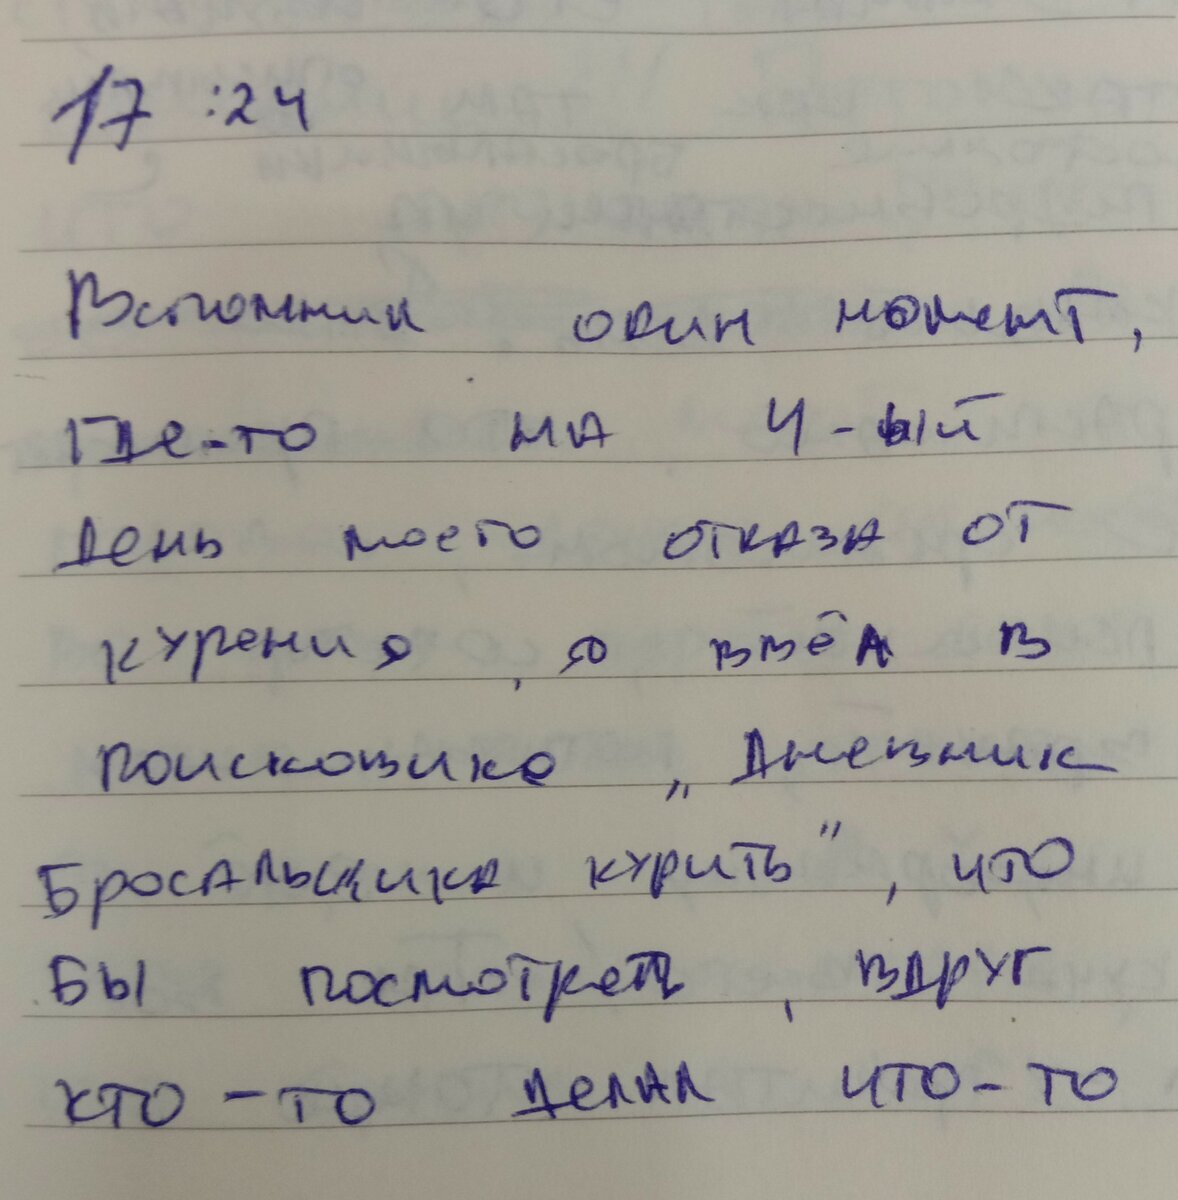 17:24
Вспомнил один момент,
Где-то на 4-ый
день моего отказа от
курения, я ввёл в
поисковике „Дневник
Бросальщика курить”, что
бы посмотреть, вдруг
кто-то делал что-то